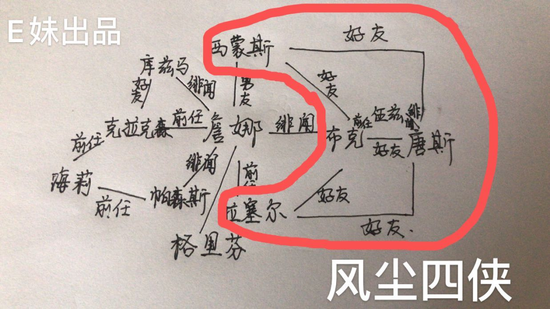 E妹出品
西蒙斯
好友
库兹马
好友
绯闻
男友
好友
前任
克拉克森
前任
詹娜
绯闻
布克
前任
伍兹
绯闻
好友
唐斯
海莉
前任
帕森斯
绯闻
前任
拉塞尔
好友
好友
格里芬
风尘四侠